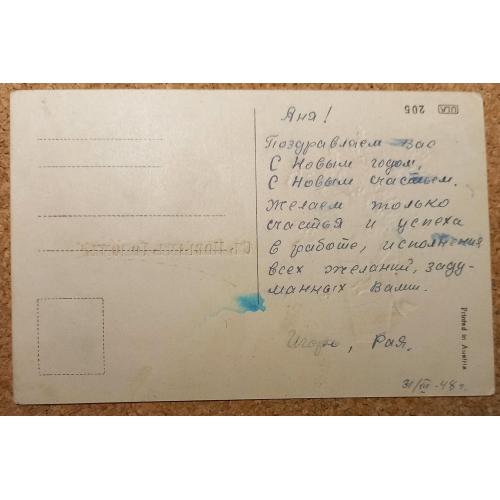 205
Аня!
Поздравляем Вас
С Новым годом,
С Новым счастьем.
Желаем только
счастья и успеха
в работе, исполнения
всех желаний, заду-
манных Вами.
Игорь, Рая.
31/XII-48г.
Printed in Austria